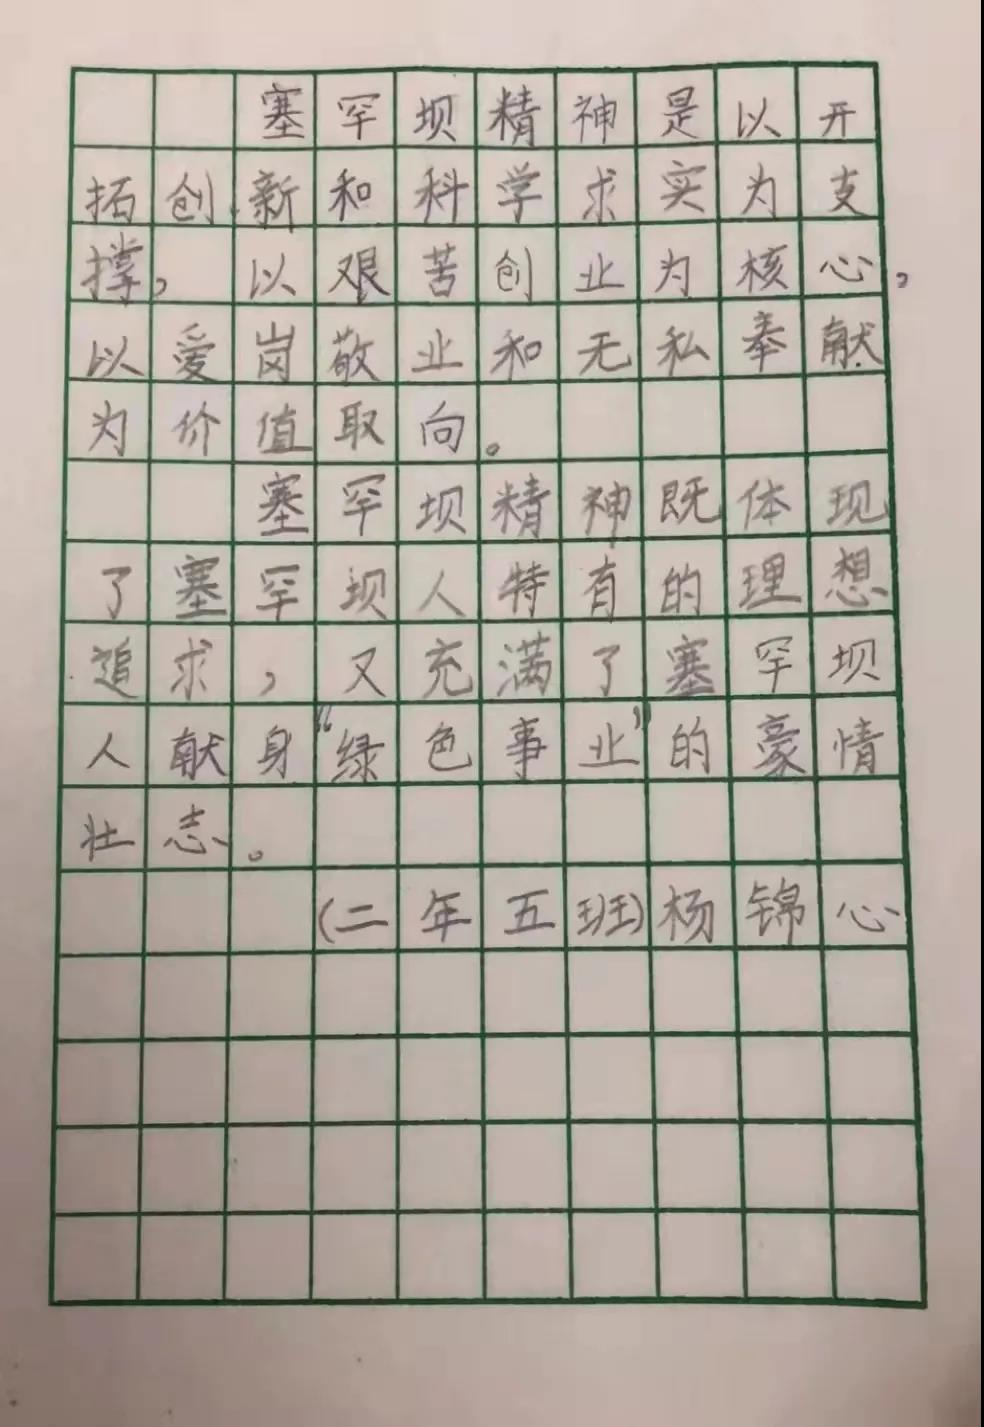 塞罕坝精神是以开
拓创新和科学求实为支
撑，以艰苦创业为核心，
以爱岗敬业和无私奉献
为价值取向。
塞罕坝精神既体现
了塞罕坝人特有的理想
追求，又充满了塞罕坝
人献身“绿色事业”的豪情
壮志。
(二年五班)杨锦心